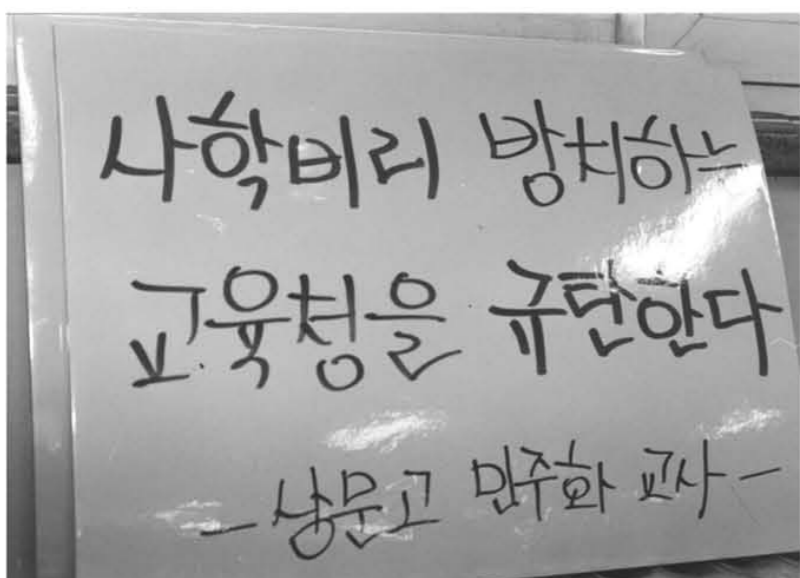 사학비리 방치하는
교육청을 규탄한다
- 상문고 민주화 교사 -